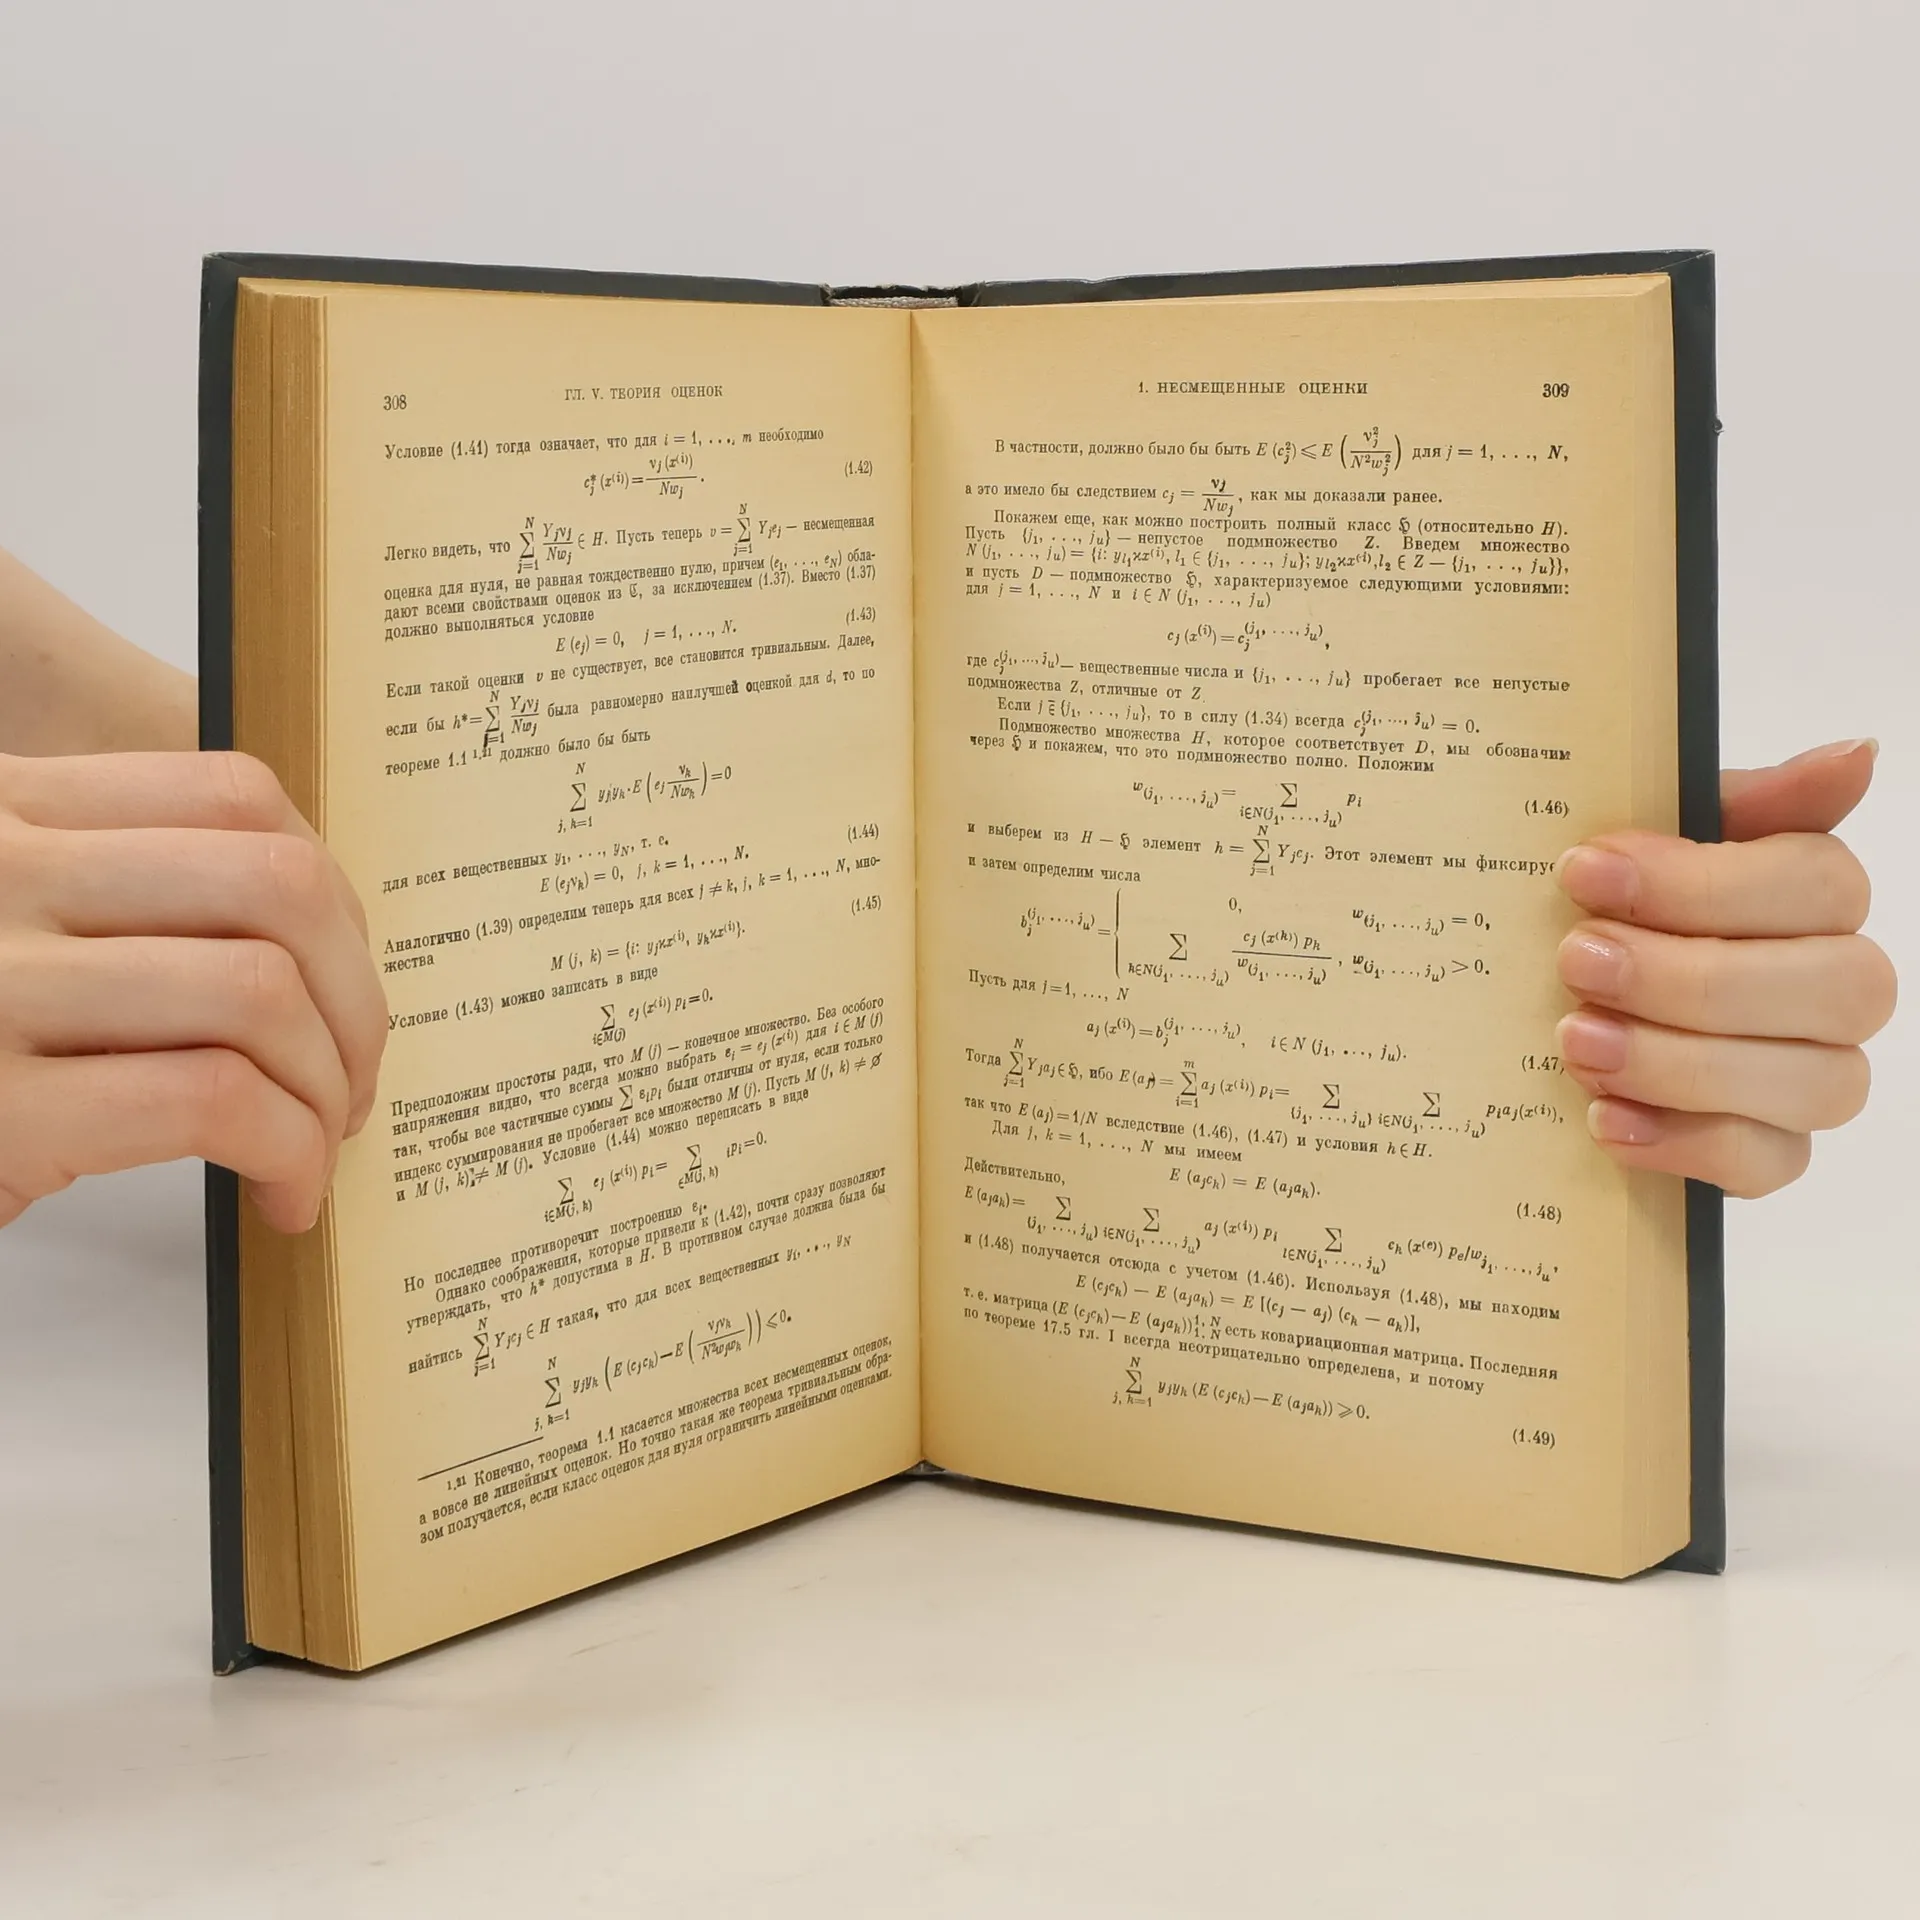 308
ГЛ. V. ТЕОРИЯ ОЦЕНОК
Условие (1.41) тогда означает, что для i = 1, ..., m необходимо
c*_j (x^(i)) = ν_j (x^(i)) / Nw_j . (1.42)
Легко видеть, что ∑_{j=1}^{N} Y_jν_j / Nw_j ∈ H. Пусть теперь v = ∑_{j=1}^{N} Y_je_j — несмещенная
оценка для нуля, не равная тождественно нулю, причем (e_1, ..., e_N) обла-
дают всеми свойствами оценок из ℭ, за исключением (1.37). Вместо (1.37)
должно выполняться условие
E (e_j) = 0, j = 1, ..., N. (1.43)
Если такой оценки v не существует, все становится тривиальным. Далее,
если бы h* = ∑_{j=1}^{N} Y_jν_j / Nw_j была равномерно наилучшей оценкой для d, то по
теореме 1.1 1.21 должно было бы быть
∑_{j, k=1}^{N} y_jy_k · E (e_j ν_k / Nw_k) = 0
для всех вещественных y_1, ..., y_N, т. е.
E (e_jν_k) = 0, j, k = 1, ..., N. (1.44)
Аналогично (1.39) определим теперь для всех j ≠ k, j, k = 1, ..., N, мно-
жества
M (j, k) = {i: y_jϰx^(i), y_kϰx^(i)}. (1.45)
Условие (1.43) можно записать в виде
∑_{i∈M(j)} e_j (x^(i)) p_i = 0.
Предположим простоты ради, что M (j) — конечное множество. Без особого
напряжения видно, что всегда можно выбрать ε_i = e_j (x^(i)) для i ∈ M (j)
так, чтобы все частичные суммы ∑ ε_ip_i были отличны от нуля, если только
индекс суммирования не пробегает все множество M (j). Пусть M (j, k) ≠ ∅
и M (j, k) ≠ M (j). Условие (1.44) можно переписать в виде
∑_{i∈M(j, k)} e_j (x^(i)) p_i = ∑_{∈M(j, k)} ip_i = 0.
Но последнее противоречит построению ε_i.
Однако соображения, которые привели к (1.42), почти сразу позволяют
утверждать, что h* допустима в H. В противном случае должна была бы
найтись ∑_{j=1}^{N} Y_jc_j ∈ H такая, что для всех вещественных y_1, ..., y_N
∑_{j, k=1}^{N} y_jy_k (E (c_jc_k) — E (ν_jν_k / N²w_jw_k)) ⩽ 0.
1.21 Конечно, теорема 1.1 касается множества всех несмещенных оценок,
а вовсе не линейных оценок. Но точно такая же теорема тривиальным обра-
зом получается, если класс оценок для нуля ограничить линейными оценками.
1. НЕСМЕЩЕННЫЕ ОЦЕНКИ
309
В частности, должно было бы быть E (c_j²) ⩽ E (ν_j² / N²w_j²) для j = 1, ..., N,
а это имело бы следствием c_j = ν_j / Nw_j, как мы доказали ранее.
Покажем еще, как можно построить полный класс ℌ (относительно H).
Пусть {j_1, ..., j_u} — непустое подмножество Z. Введем множество
N (j_1, ..., j_u) = {i: y_{l_1}ϰx^(i), l_1 ∈ {j_1, ..., j_u}; y_{l_2}ϰx^(i), l_2 ∈ Z — {j_1, ..., j_u}},
и пусть D — подмножество ℌ, характеризуемое следующими условиями:
для j = 1, ..., N и i ∈ N (j_1, ..., j_u)
c_j (x^(i)) = c_j^(j_1, ..., j_u),
где c_j^(j_1, ..., j_u) — вещественные числа и {j_1, ..., j_u} пробегает все непустые
подмножества Z, отличные от Z.
Если j ∉ {j_1, ..., j_u}, то в силу (1.34) всегда c_j^(j_1, ..., j_u) = 0.
Подмножество множества H, которое соответствует D, мы обозначим
через ℌ и покажем, что это подмножество полно. Положим
w_(j_1, ..., j_u) = ∑_{i∈N(j_1, ..., j_u)} p_i (1.46)
и выберем из H — ℌ элемент h = ∑_{j=1}^{N} Y_jc_j. Этот элемент мы фиксируе
и затем определим числа
b_j^(j_1, ..., j_u) = { 0, w_(j_1, ..., j_u) = 0,
∑_{k∈N(j_1, ..., j_u)} c_j (x^(k)) p_k / w_(j_1, ..., j_u), w_(j_1, ..., j_u) > 0.
Пусть для j = 1, ..., N
a_j (x^(i)) = b_j^(j_1, ..., j_u), i ∈ N (j_1, ..., j_u). (1.47)
Тогда ∑_{j=1}^{N} Y_ja_j ∈ ℌ, ибо E (a_j) = ∑_{i=1}^{m} a_j (x^(i)) p_i = ∑_{{j_1, ..., j_u}} ∑_{i∈N(j_1, ..., j_u)} p_ia_j(x^(i)),
так что E (a_j) = 1/N вследствие (1.46), (1.47) и условия h ∈ H.
Для j, k = 1, ..., N мы имеем
E (a_jc_k) = E (a_ja_k). (1.48)
Действительно,
E (a_ja_k) = ∑_{(j_1, ..., j_u)} ∑_{i∈N(j_1, ..., j_u)} a_j (x^(i)) p_i ∑_{l∈N(j_1, ..., j_u)} c_k (x^(e)) p_e/w_{j_1, ..., j_u},
и (1.48) получается отсюда с учетом (1.46). Используя (1.48), мы находим
E (c_jc_k) — E (a_ja_k) = E [(c_j — a_j) (c_k — a_k)],
т. е. матрица (E (c_jc_k) — E (a_ja_k))_{1, N}^{1, N} есть ковариационная матрица. Последняя
по теореме 17.5 гл. I всегда неотрицательно определена, и потому
∑_{j, k=1}^{N} y_jy_k (E (c_jc_k) — E (a_ja_k)) ⩾ 0. (1.49)